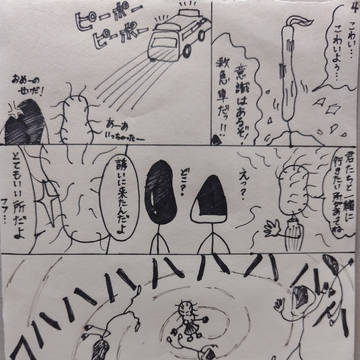 4
こわい…
こわいよぅ…
意識はあるぞ!
救急車だっ!!
ピーポー
ピーポー
あーあ
いっちゃったー
おめーの
せいだ!
君たちと一緒に
行きたい所があってね
えっ?
どこ?
誘いに来たんだよ
とてもいい所だよ
ファ…
ハハハハハハハハ